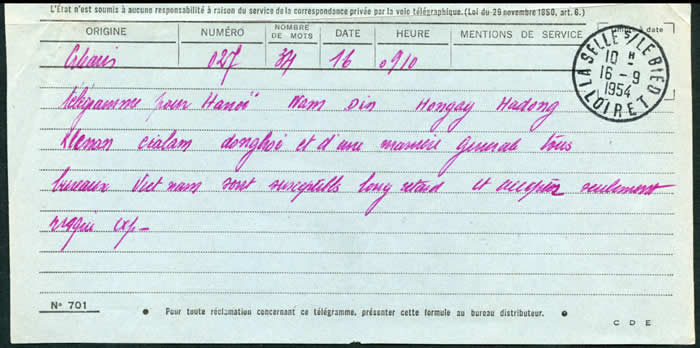 L'État n'est soumis à aucune responsabilité à raison du service de la correspondance privée par la voie télégraphique. (Loi du 29 novembre 1850, art. 6.)
ORIGINE NUMÉRO NOMBRE DE MOTS DATE HEURE MENTIONS DE SERVICE Timbre à date
Orleans 027 34 16 0910
LA SELLE S/ LE BIED
10 H
16 - 9
1954
LOIRET
télégramme pour Hanoï Nam Din Hongay Hadong
cialam donghoi et d'une manière générale tous
bureaux Viet nam sont susceptibles long retard et accepter seulement
risque exp -
No 701
Pour toute réclamation concernant ce télégramme, présenter cette formule au bureau distributeur.
C D E